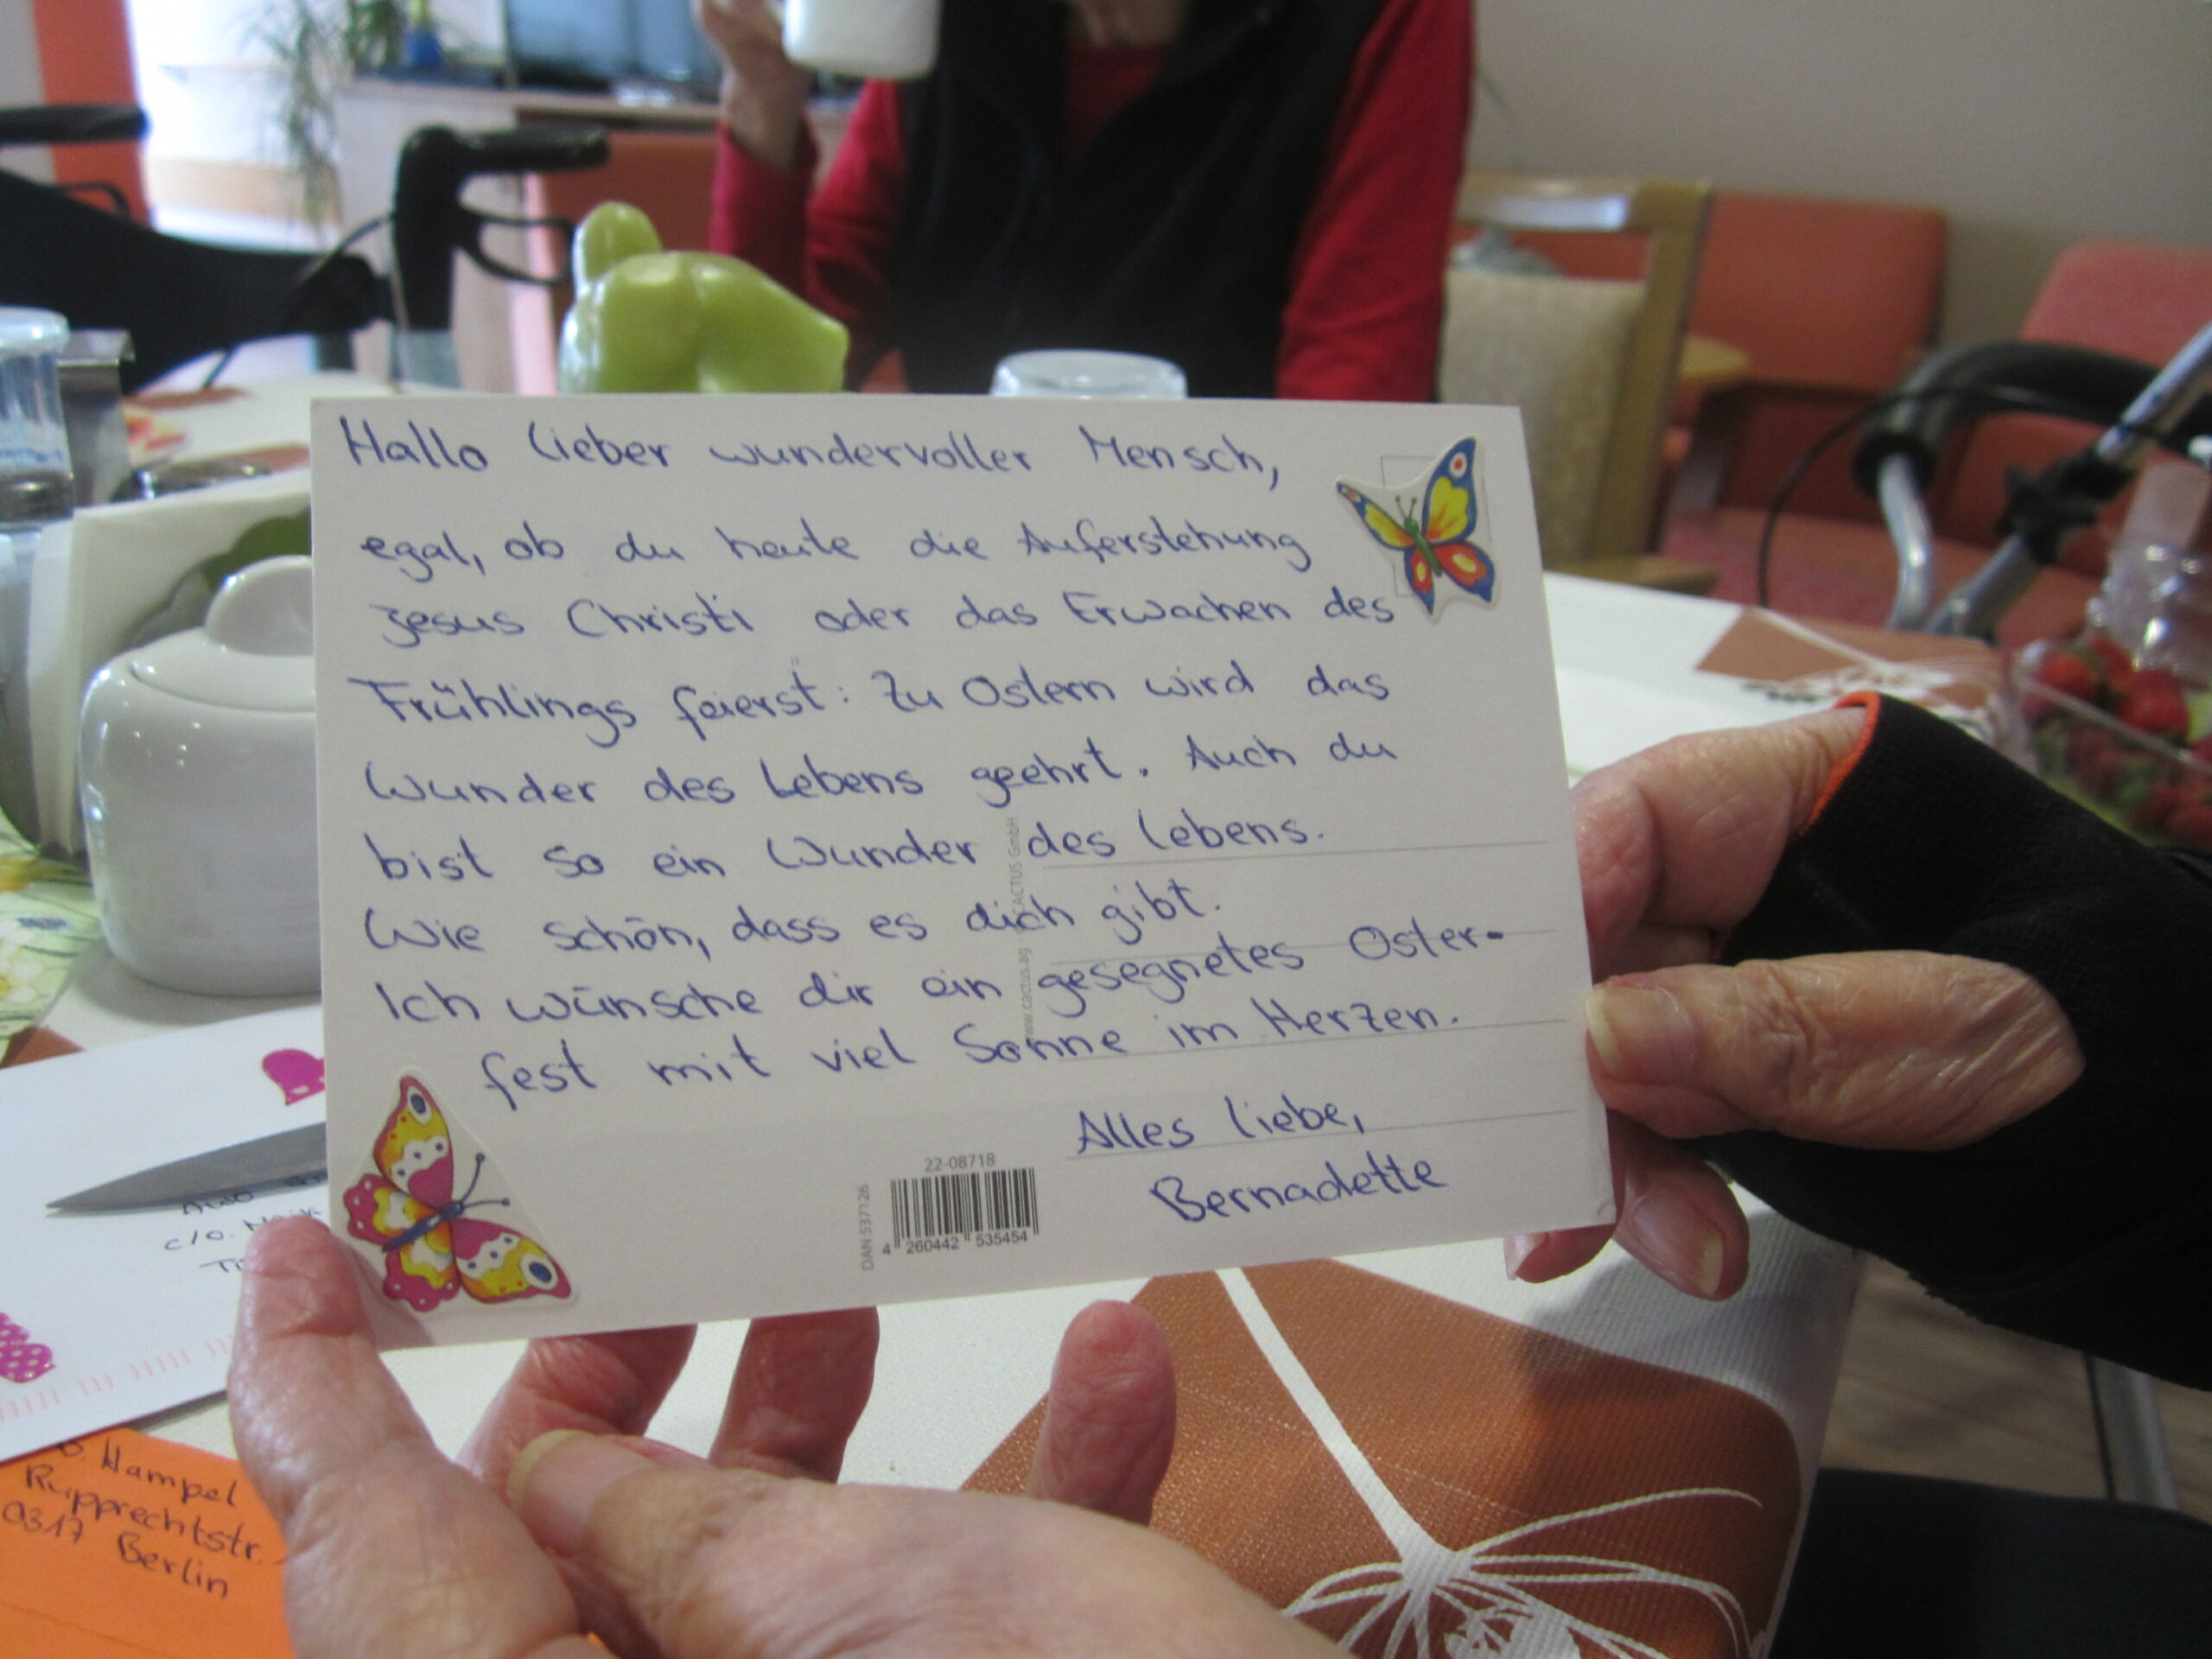 Hallo lieber wundervoller Mensch,
egal, ob du heute die Auferstehung
Jesus Christi oder das Erwachen des
Frühlings feierst: Zu Ostern wird das
Wunder des Lebens geehrt. Auch du
bist so ein Wunder des Lebens.
Wie schön, dass es dich gibt.
Ich wünsche dir ein gesegnetes Oster-
fest mit viel Sonne im Herzen.
Alles liebe,
Bernadette
www.cactus.ag CACTUS GmbH
22-08718
DAN 537126
4 260442 535454
c/o.
Hampel
Rupprechtstr.
0317 Berlin